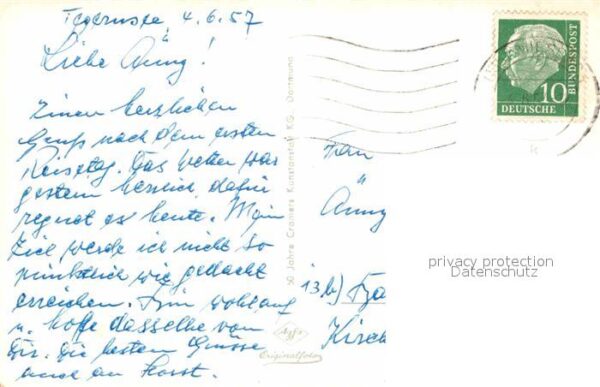 Tegernsee 4.6.57
Liebe Änny!
Einen herzlichen
Gruß nach dem ersten
Reisetag. Das Wetter war
gestern herrlich, dafür
regnet es heute. Mein
Ziel werde ich nicht so
pünktlich wie gedacht
erreichen. Bin wohlauf
u. hoffe dasselbe von
Dir. Die besten Grüsse
auch an Horst.
50 Jahre Cramers Kunstanstalt KG. Dortmund
Agfa
Originalfoto
10
DEUTSCHE
BUNDESPOST
Frau
Änny
privacy protection
Datenschutz
13b)
Kirch